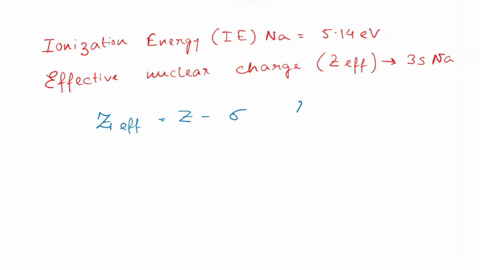 Ionization Energy (IE) Na = 5.14 eV.
Effective nuclear charge (Zeff) → 3s Na
Zeff = Z - σ